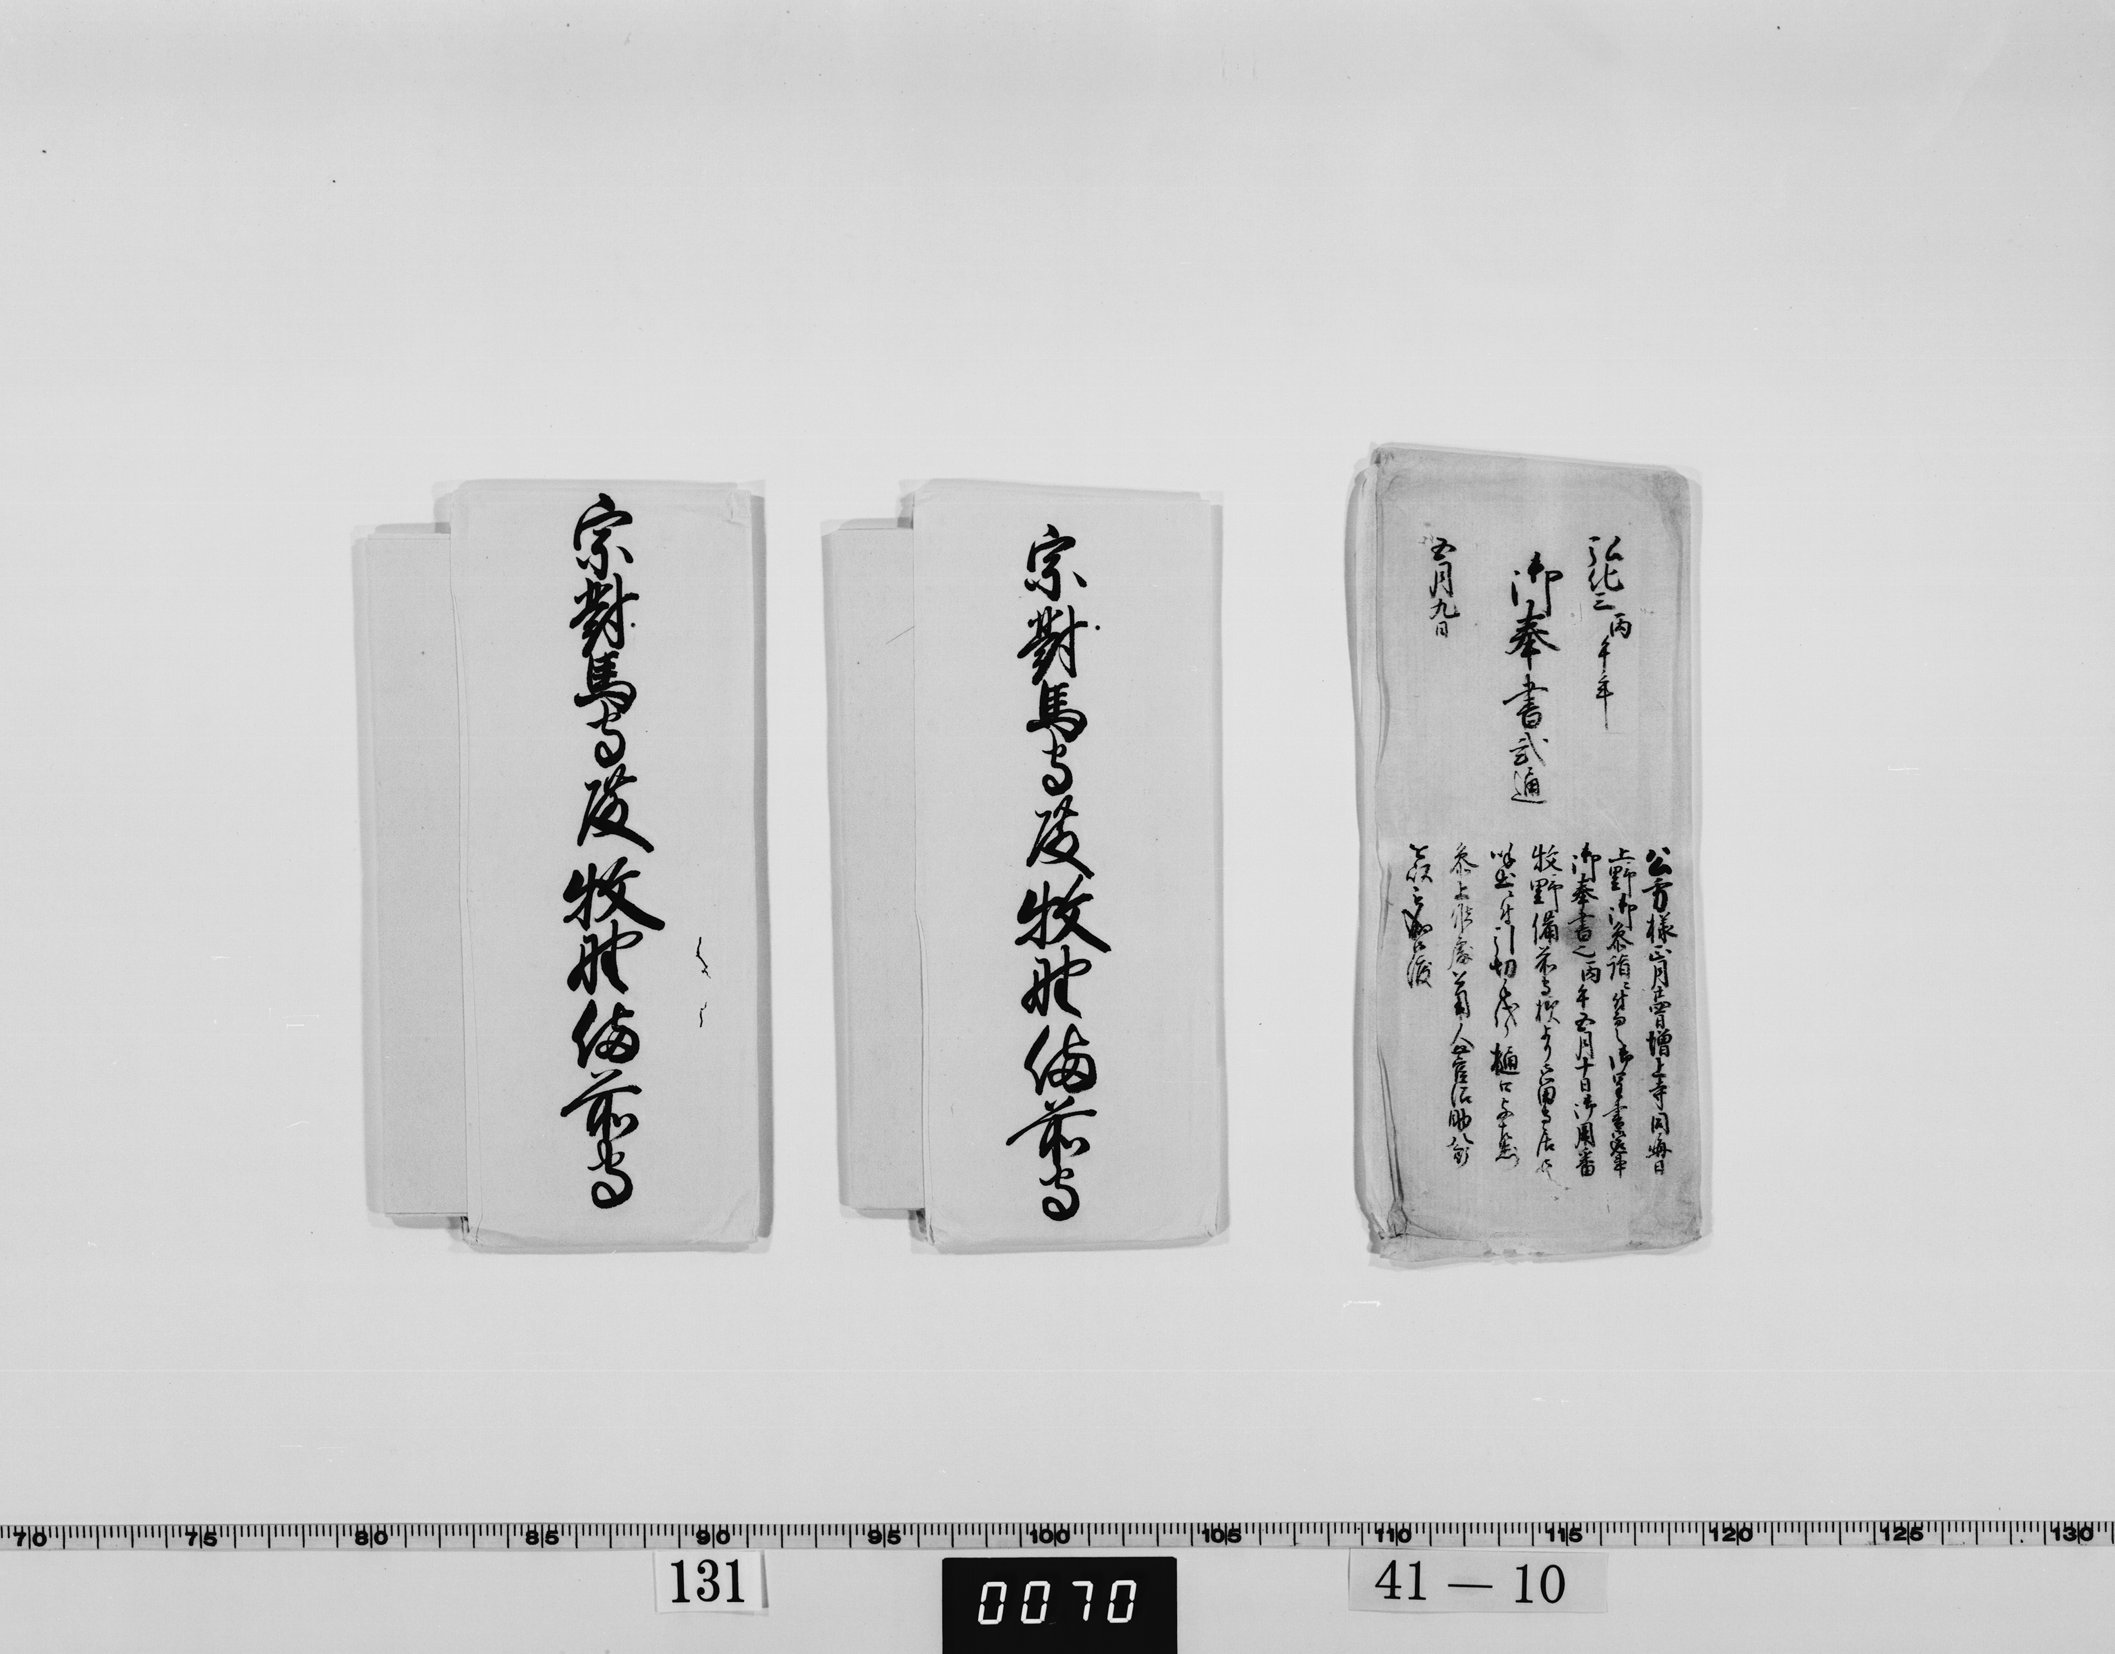 弘化三丙午年
御奉書弐通
五月九日
公方様正月廿四日増上寺同晦日
上野御参詣ニ付而之御呈書返翰
御奉書也丙午五月十日御用番
牧野備前守様より御留守居
参上
宗對馬守殿 牧野備前守
宗對馬守殿 牧野備前守
70 75 80 85 90 95 100 105 110 115 120 125 130
131
0070
41－10